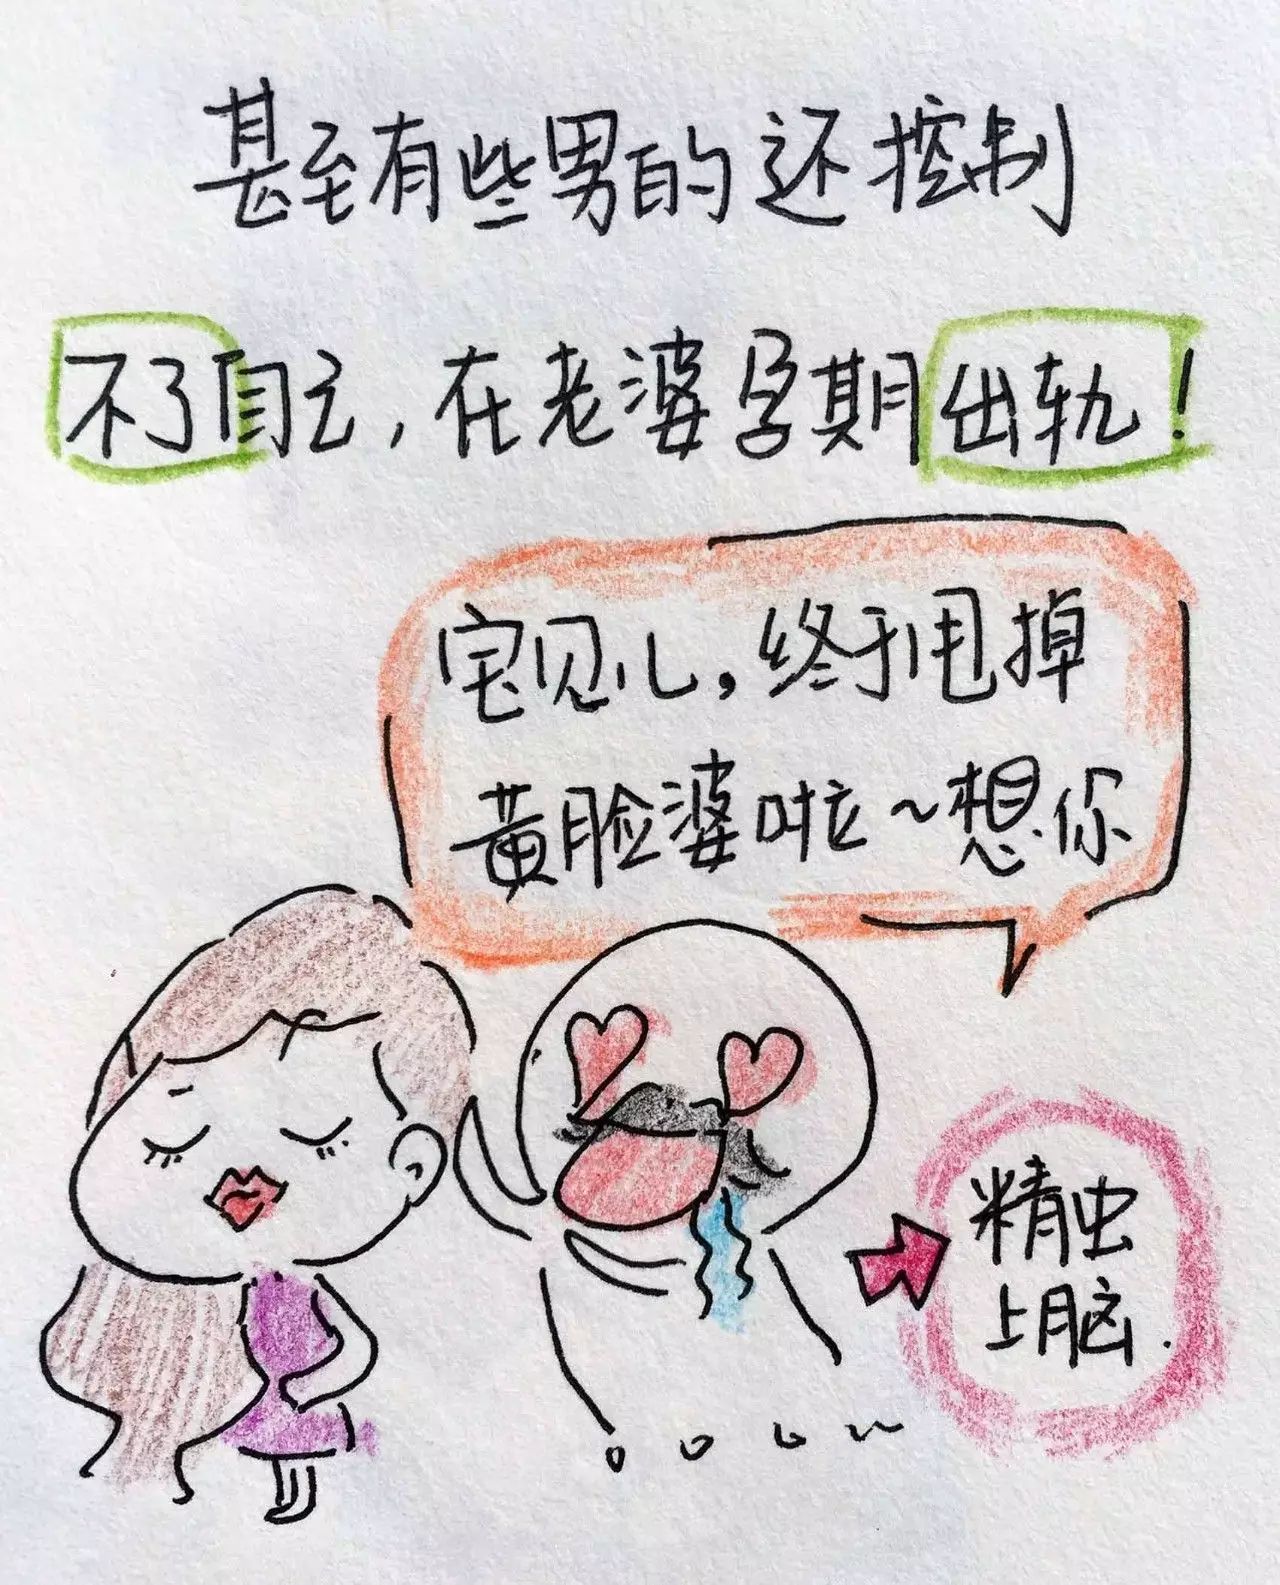 甚至有些男的还控制
不了自己，在老婆孕期出轨！
宝贝儿，终于甩掉
黄脸婆啦~想你
精虫
上脑.